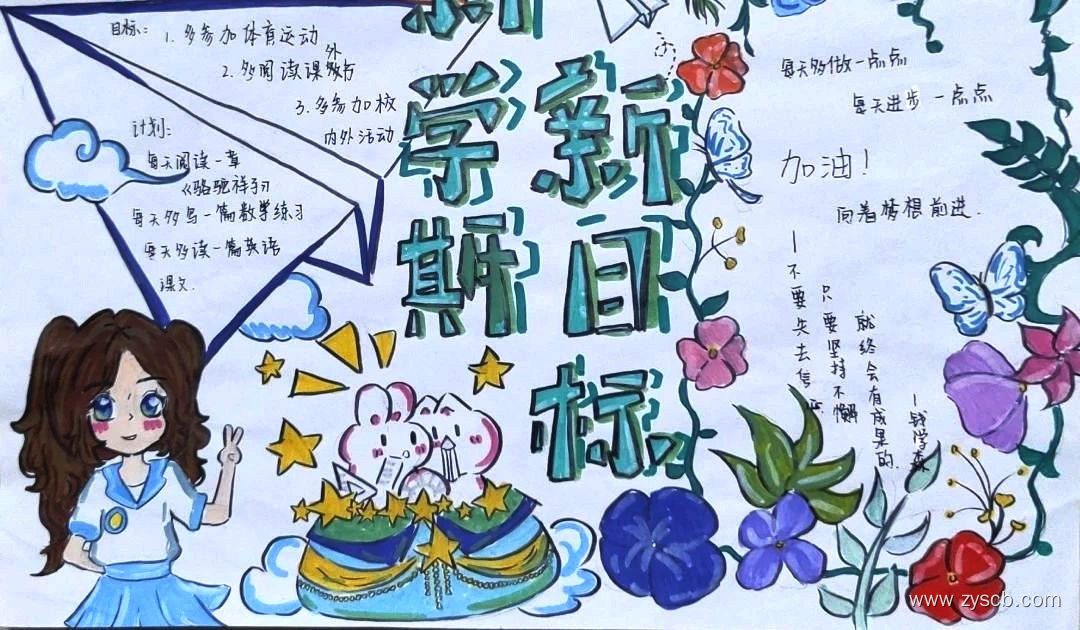 目标:
1. 多参加体育运动
2. 多阅读课外
3. 多参加校
内外活动
计划:
每天阅读一章
《骆驼祥子》
每天多写一篇数学练习
每天多读一篇英语
课文.
新
学
期
新
目
标
每天多做一点点
每天进步一点点
加油!
向着梦想前进.
一不要失去信心
只要坚持不懈
就终会有成果的.
一钱学森
www.zyscb.com